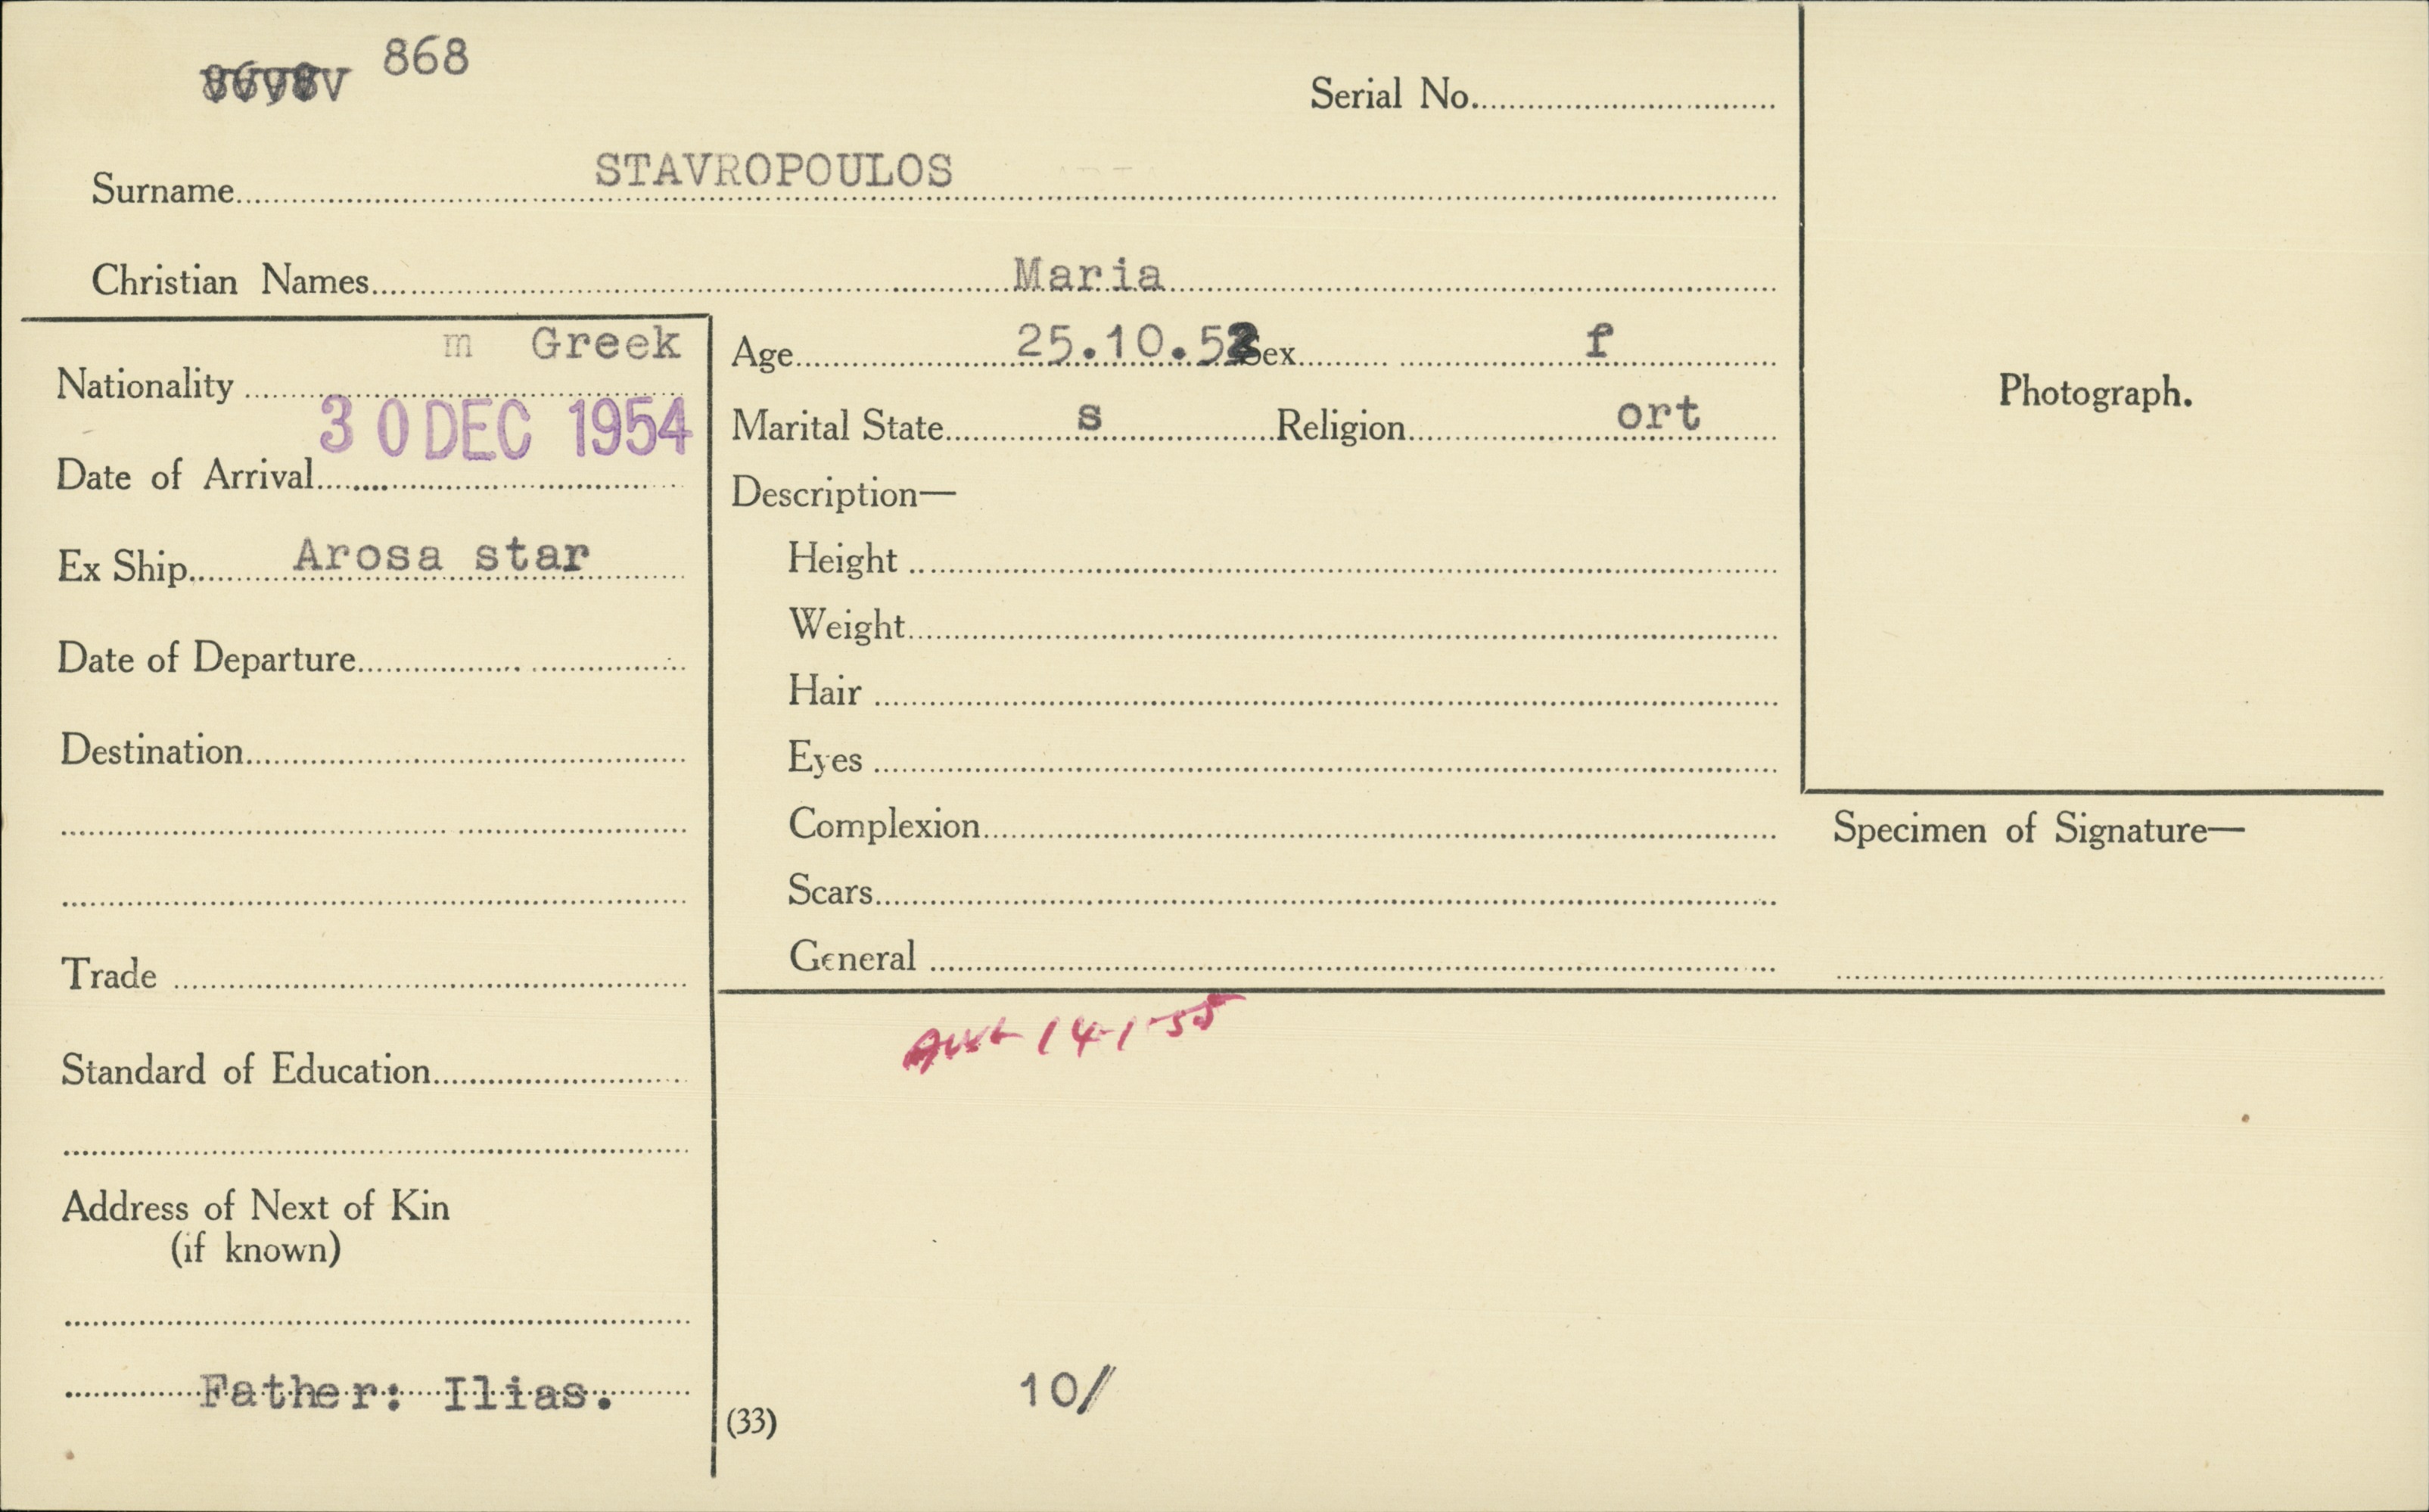 868
Serial No.
Surname STAVROPOULOS
Christian Names Maria
m Greek
Nationality
30 DEC 1954
Date of Arrival
Ex Ship Arosa star
Date of Departure
Destination
Trade
Standard of Education
Address of Next of Kin
(if known)
Father: Ilias.
Age 25.10.5 Sex f
Marital State s Religion ort
Description—
Height
Weight
Hair
Eyes
Complexion
Scars
General
Photograph.
Specimen of Signature—
14-1-55
10/
(33)